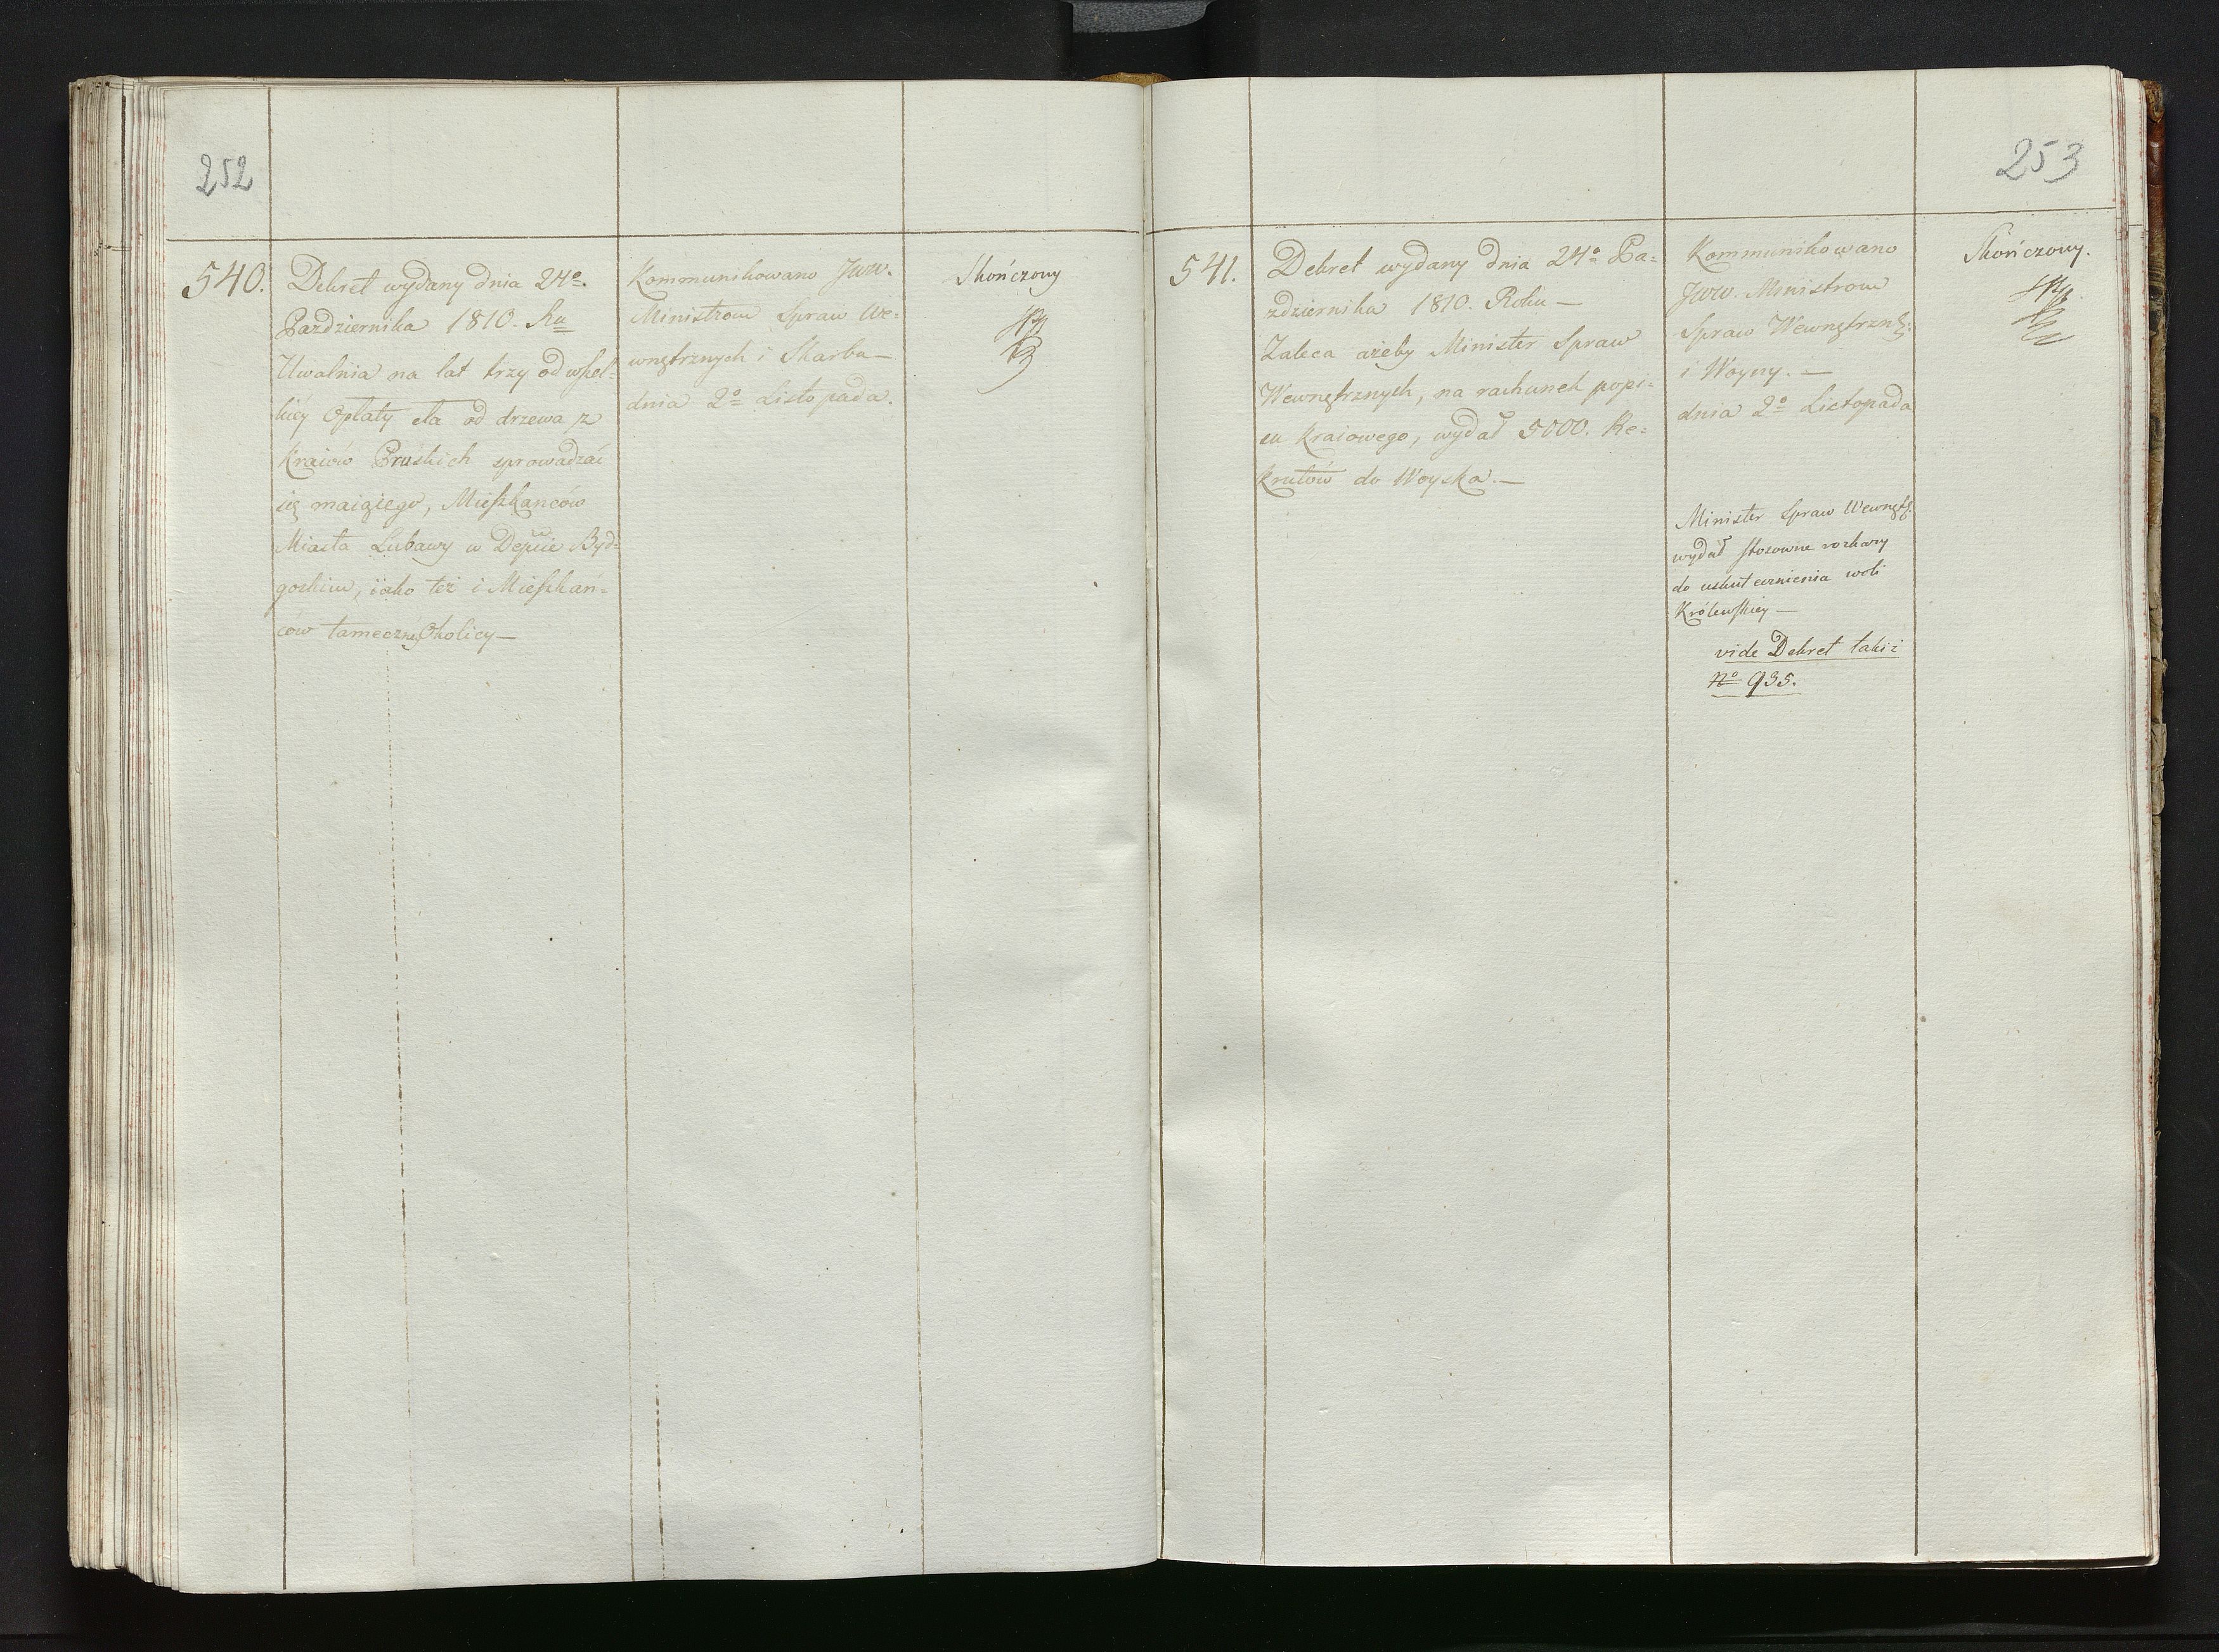 252
540.
Dekret wydany dnia 24º.
Pazdziernika 1810. Ru
Uwalnia na lat trzy od wszel-
kiéy Opłaty cła od drzewa z
Kraiów Pruskich sprowadzać
się maiącego, Mieszkanców
Miasta Lubawy w Depcie Byd=
goskim, iako też i Mieszkań=
ców tameczney Okolicy —
Kommunikowano Jww.
Ministrom Spraw We=
wnętrznych i Skarbu —
dnia 2º Listopada.
Skończony
253
541.
Dekret wydany dnia 24º Pa=
zdziernika 1810. Roku —
Zaleca ażeby Minister Spraw
Wewnętrznych, na rachunek popi=
su Kraiowego, wydał 5000. Re=
krutów do Woyska. —
Kommunikowano
Jww. Ministrom
Spraw Wewnętrzn:
i Woyny. —
dnia 2º Listopada
Minister Spraw Wewnętr:
wydał stosowne rozkazy
do uskutecznienia woli
Królewskiey —
vide Dekret takiż
Nº 935.
Skończony.